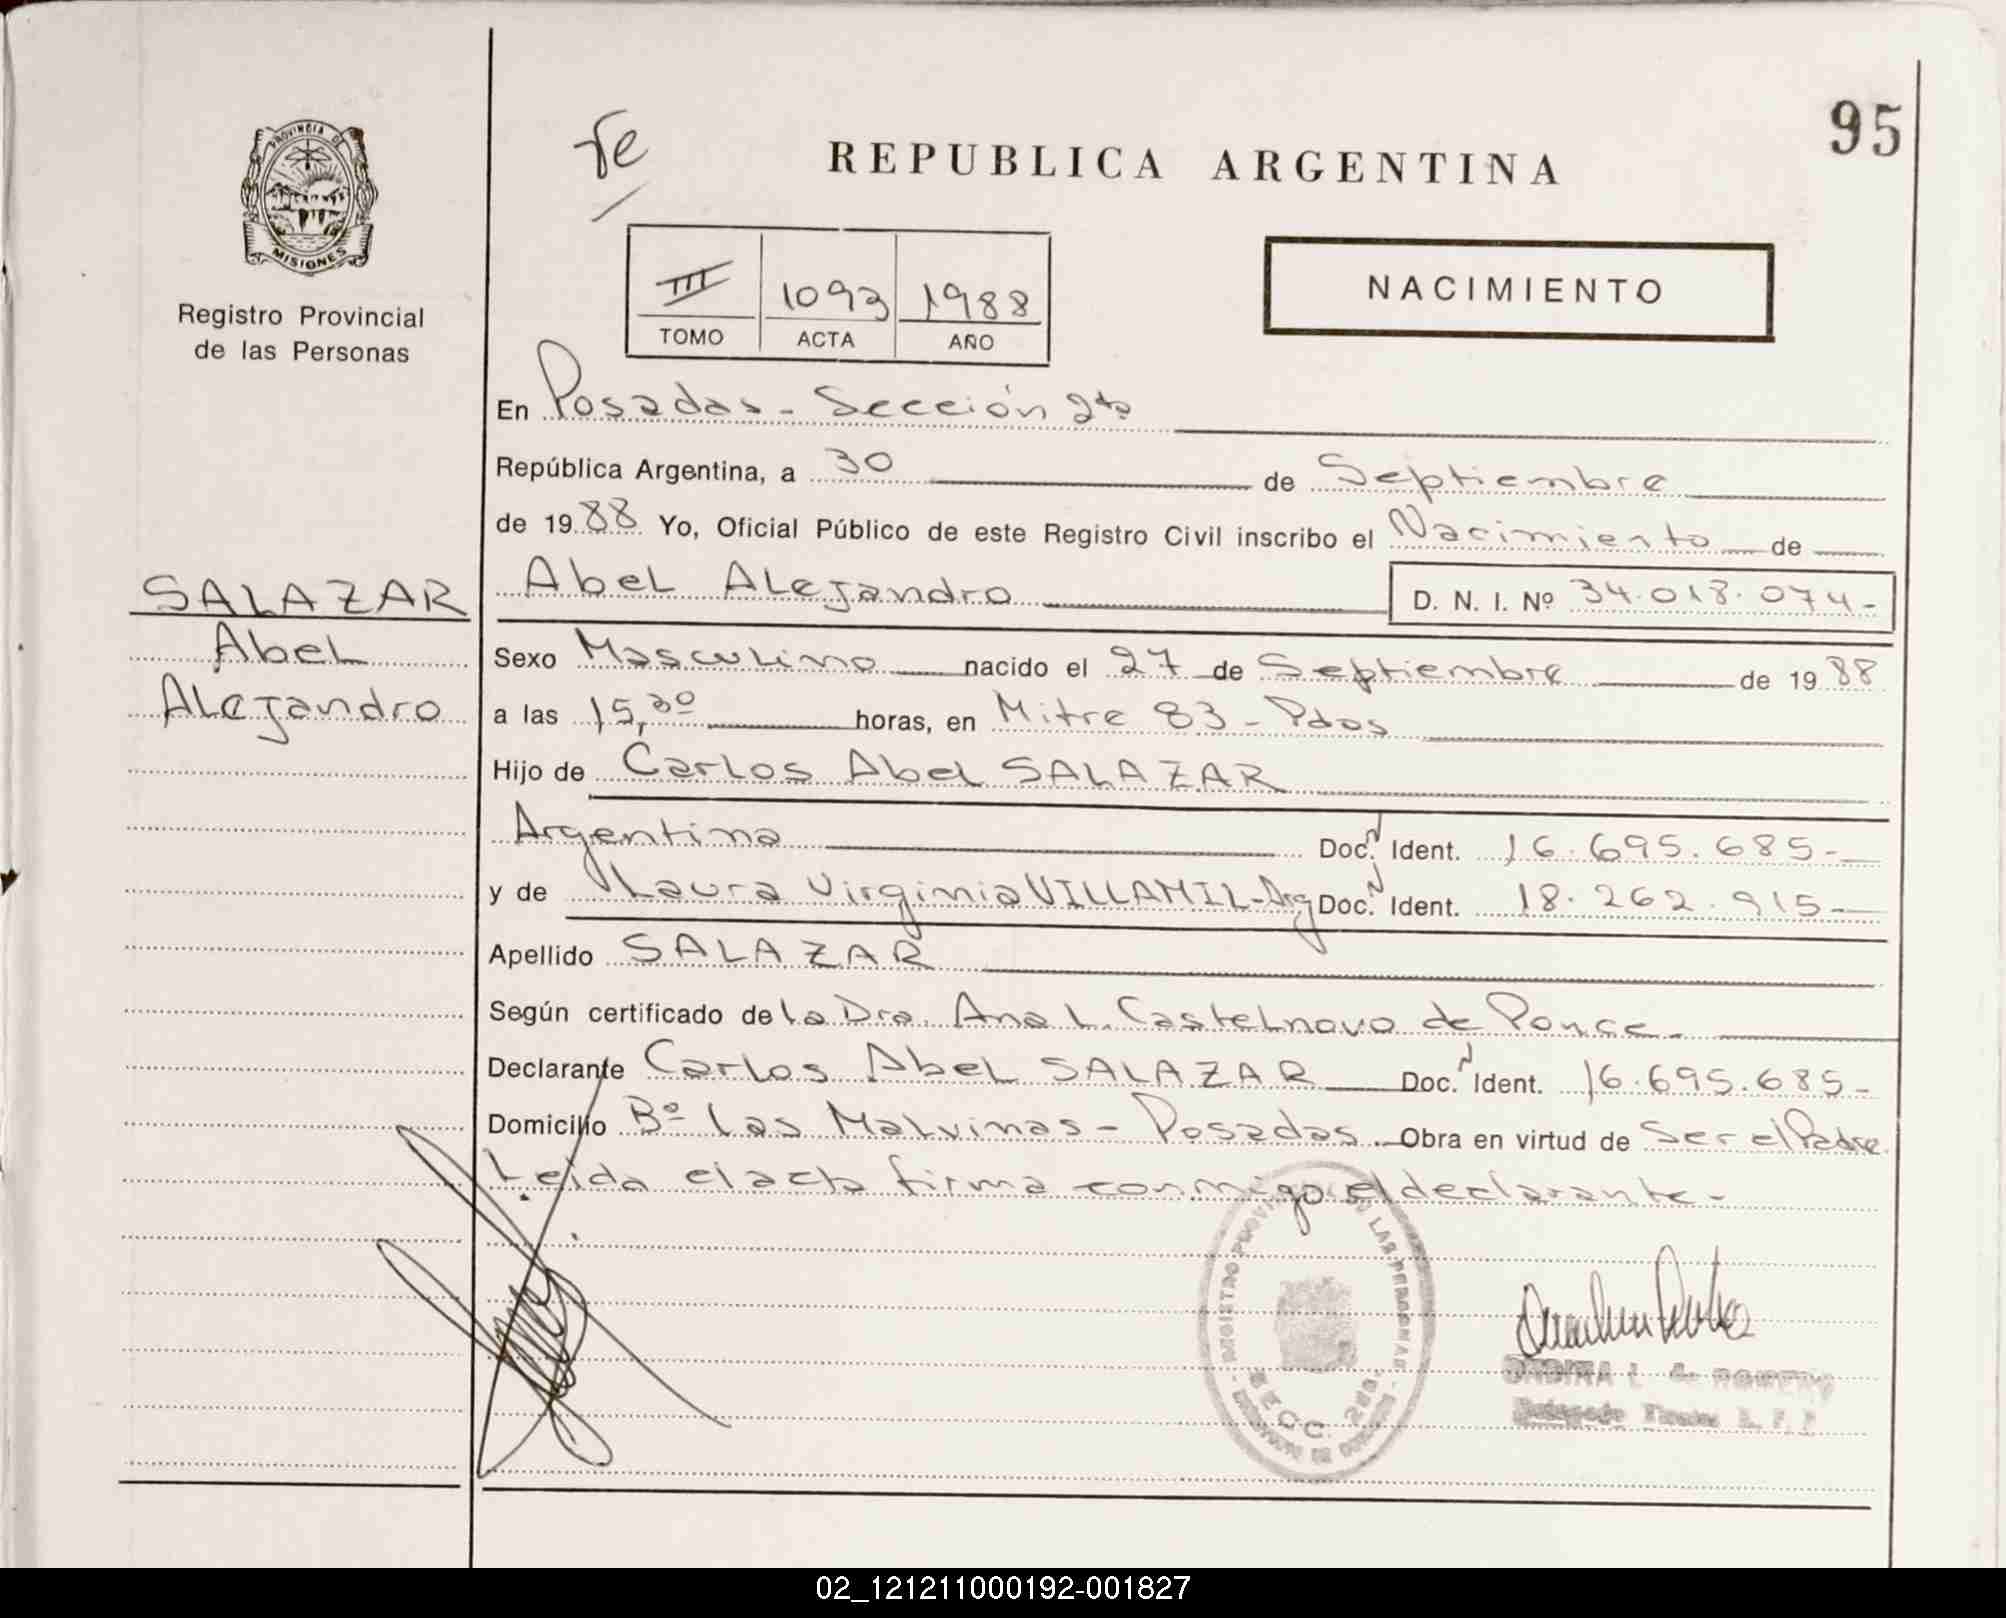 95
REPUBLICA ARGENTINA
PROVINCIA DE
MISIONES
Registro Provincial
de las Personas
III 1093 1988
TOMO ACTA AÑO
NACIMIENTO
En Posadas - Sección 2da
República Argentina, a 30 de Septiembre
de 1988 Yo, Oficial Público de este Registro Civil inscribo el Nacimiento de
SALAZAR
Abel
Alejandro
Abel Alejandro D. N. I. Nº 34.018.074-
Sexo Masculino nacido el 27 de Septiembre de 1988
a las 15,30 horas, en Mitre 83 - Pdas
Hijo de Carlos Abel SALAZAR
Argentina Doc. Ident. 16.695.685-
y de Laura Virginia VILLAMIL-Arg Doc. Ident. 18.262.915-
Apellido SALAZAR
Según certificado de la Dra. Ana L. Castelnovo de Ponce-
Declarante Carlos Abel SALAZAR Doc. Ident. 16.695.685-
Domicilio Bº Las Malvinas - Posadas Obra en virtud de Ser el Padre
Leida el acta firma conmigo el declarante-
REGISTRO PROVINCIAL DE LAS PERSONAS
SECC. 2da.
02_121211000192-001827